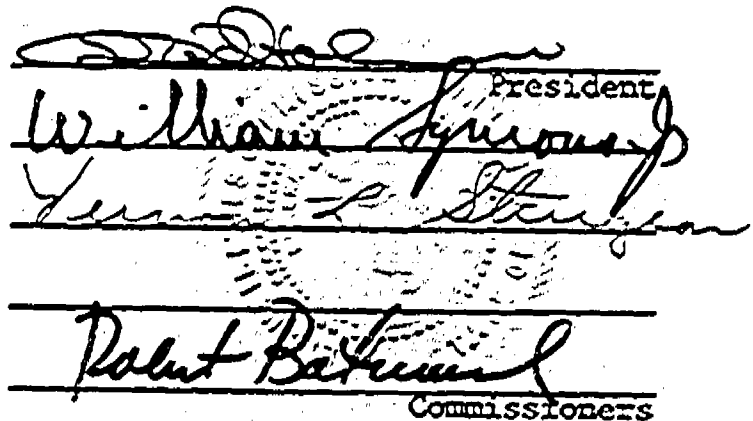 President
William Symons Jr
Vernon L. Sturgeon
Robert Batinovich
Commissioners